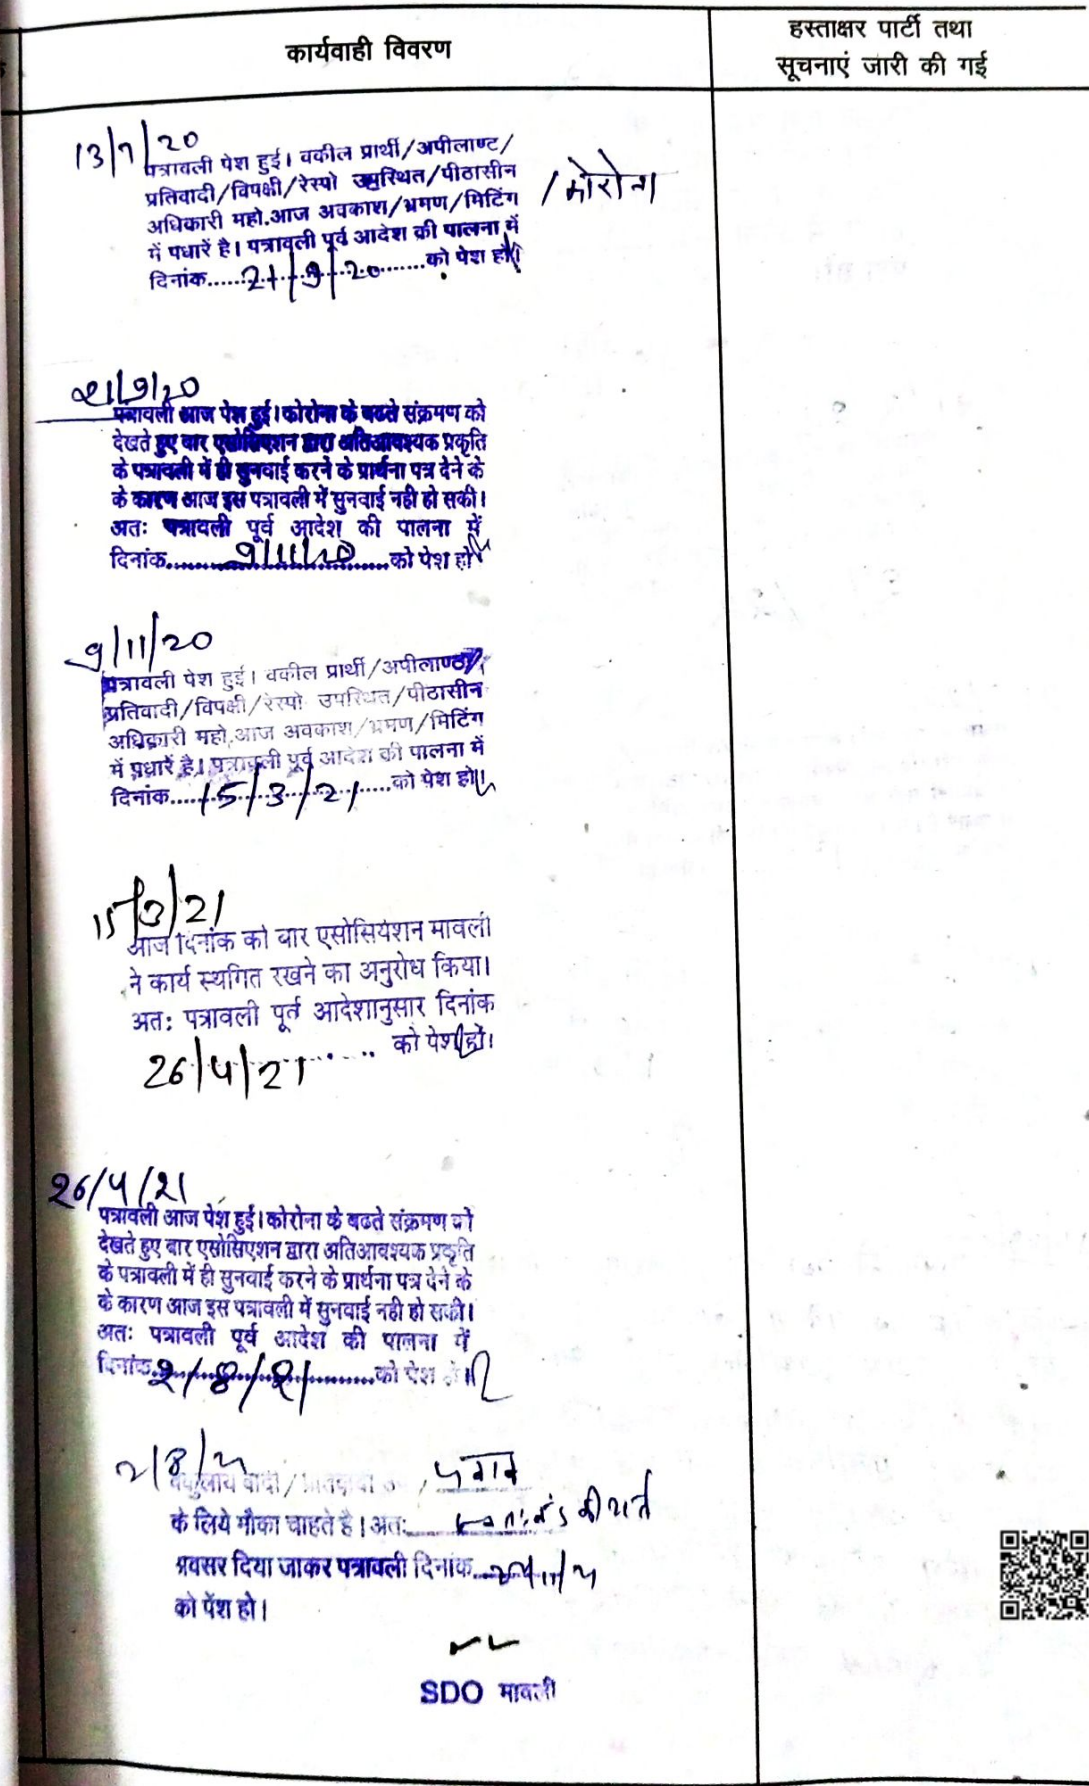 कार्यवाही विवरण
हस्ताक्षर पार्टी तथा
सूचनाएं जारी की गई
13/7/20
पत्रावली पेश हुई। वकील प्रार्थी/अपीलाण्ट/
प्रतिवादी/विपक्षी/रेस्पो उपस्थित/पीठासीन
/कोरोना
अधिकारी महो.आज अवकाश/भ्रमण/मिटिंग
में पधारें है। पत्रावली पूर्व आदेश की पालना में
दिनांक......21/9/20......को पेश हो।
21/9/20
पत्रावली आज पेश हुई। कोरोना के बढते संक्रमण को
देखते हुए बार एसोसिएशन द्वारा अतिआवश्यक प्रकृति
के पत्रावली में ही सुनवाई करने के प्रार्थना पत्र देने के
के कारण आज इस पत्रावली में सुनवाई नही हो सकी।
अतः पत्रावली पूर्व आदेश की पालना में
दिनांक......9/11/20......को पेश हो
9/11/20
पत्रावली पेश हुई। वकील प्रार्थी/अपीलाण्ट/
प्रतिवादी/विपक्षी/रेस्पो उपस्थित/पीठासीन
अधिकारी महो.आज अवकाश/भ्रमण/मिटिंग
में पधारें है। पत्रावली पूर्व आदेश की पालना में
दिनांक.....15/3/21......को पेश हो।
15/3/21
आज दिनांक को बार एसोसियेशन मावली
ने कार्य स्थगित रखने का अनुरोध किया।
अतः पत्रावली पूर्व आदेशानुसार दिनांक
26/4/21..... को पेश हो।
26/4/21
पत्रावली आज पेश हुई। कोरोना के बढते संक्रमण को
देखते हुए बार एसोसिएशन द्वारा अतिआवश्यक प्रकृति
के पत्रावली में ही सुनवाई करने के प्रार्थना पत्र देने के
के कारण आज इस पत्रावली में सुनवाई नही हो सकी।
अतः पत्रावली पूर्व आदेश की पालना में
दिनांक.2/8/21......को पेश हो।
2/8/21
वादी/
के लिये मौका चाहते है। अतः
अवसर दिया जाकर पत्रावली दिनांक
को पेंश हो।
SDO मावली